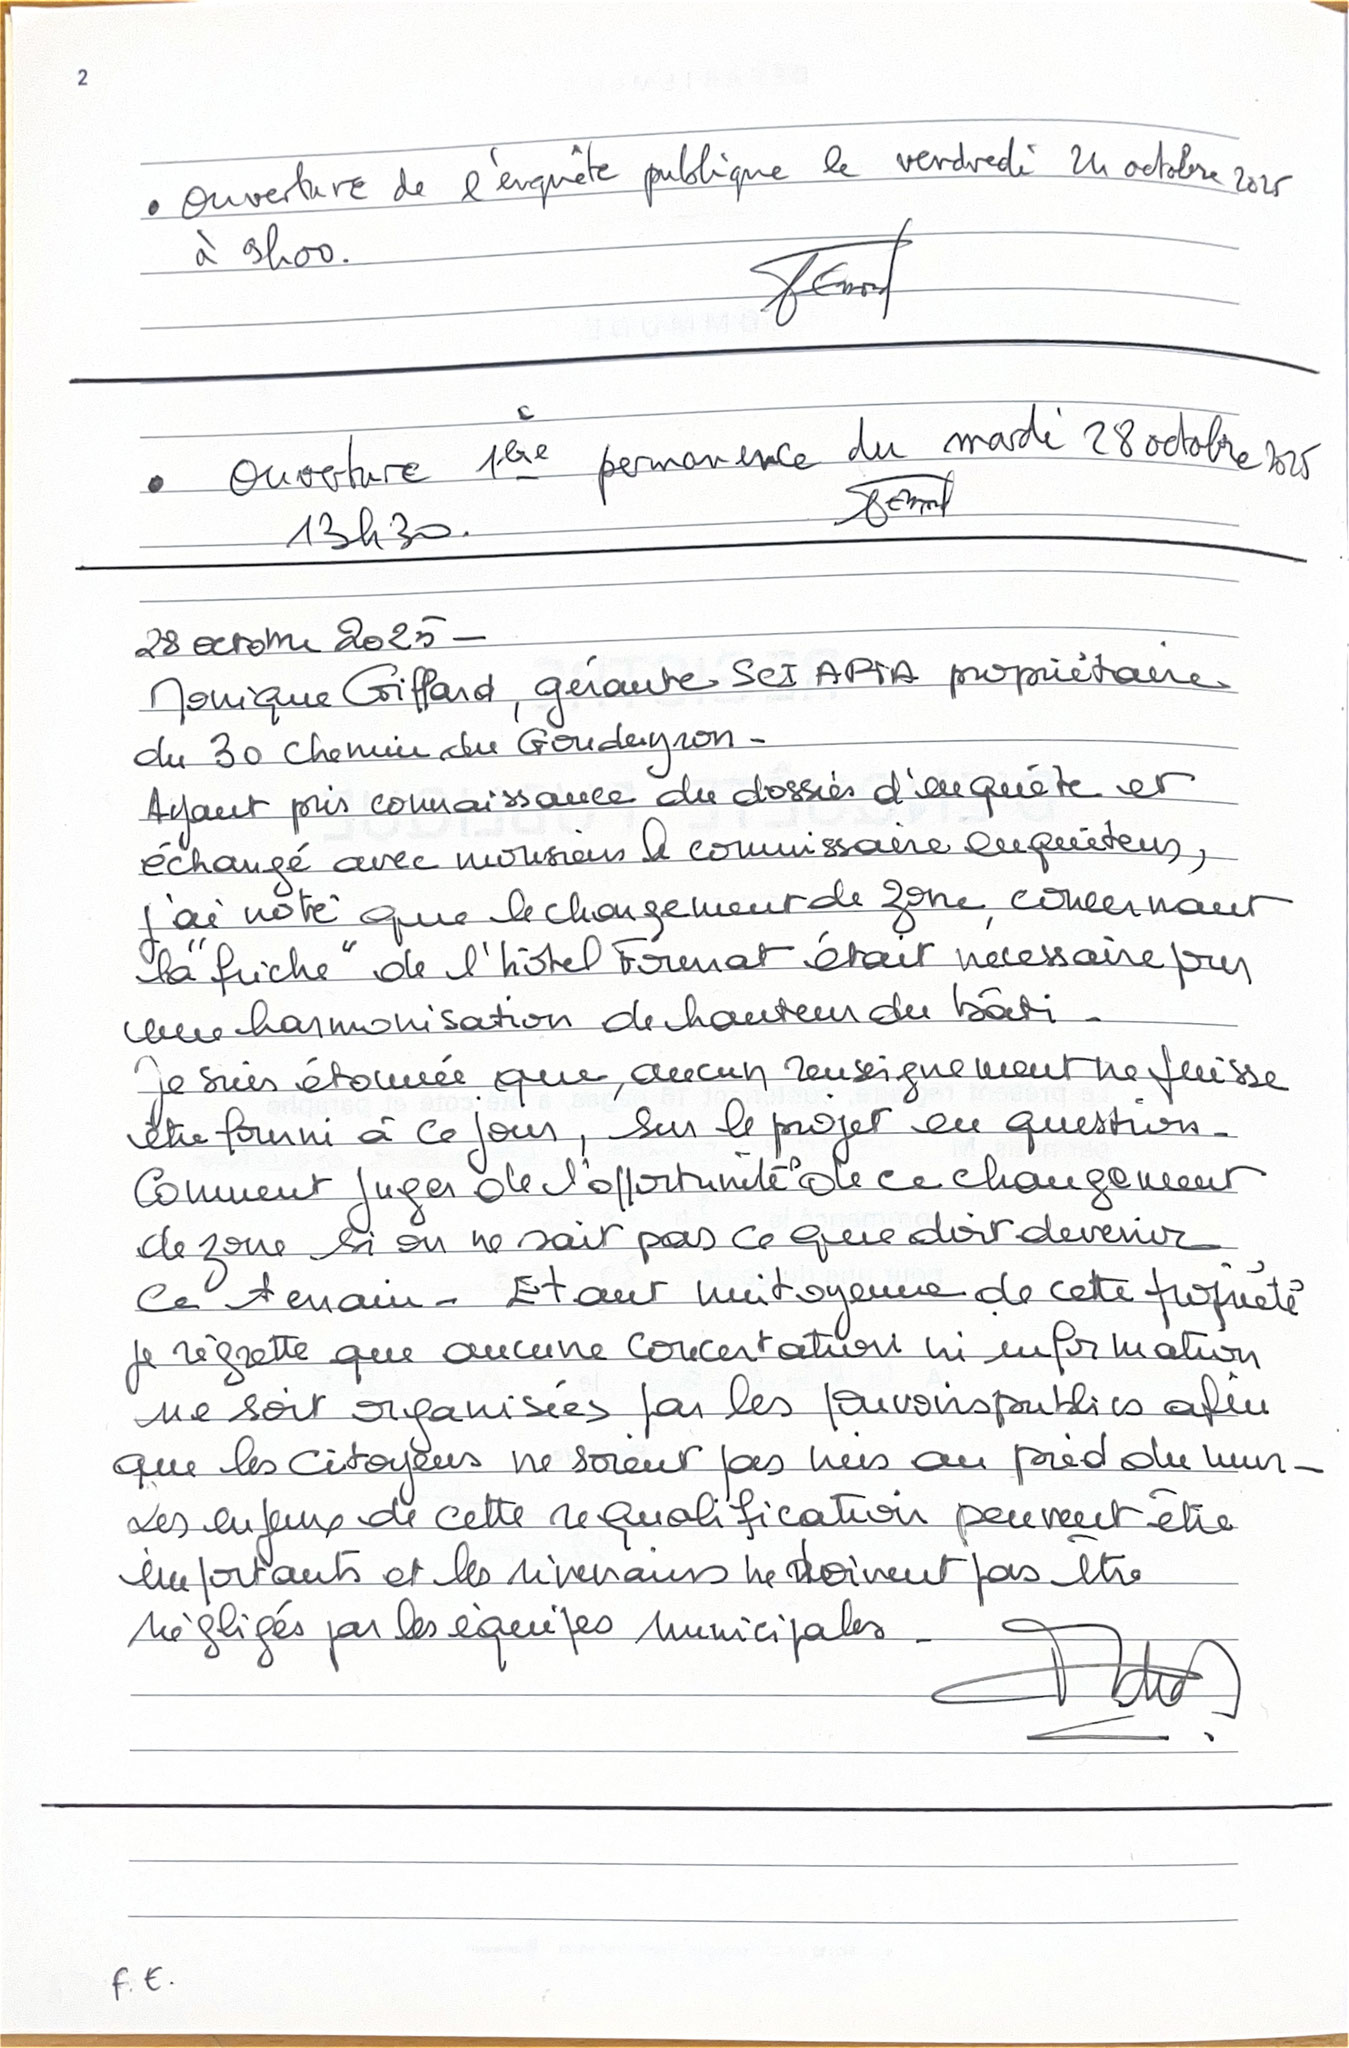 2
• Ouverture de l'enquête publique le vendredi 24 octobre 2025
à 9h00.
• Ouverture 1ère permanence du mardi 28 octobre 2025
13h30.
28 octobre 2025 -
Monique Giffard, gérante SCI APIA propriétaire
du 30 chemin du Goudeyron -
Ayant pris connaissance du dossier d'enquête et
échangé avec monsieur le commissaire enquêteur,
j'ai noté que le changement de zone, concernant
la "friche" de l'hôtel Format était nécessaire pour
une harmonisation de hauteur du bâti -
Je suis étonnée que, aucun renseignement ne puisse
être fourni à ce jour, sur le projet en question -
Comment juger de l'"opportunité" de ce changement
de zone si on ne sait pas ce que doit devenir
ce terrain - Etant mitoyenne de cette propriété
je regrette que aucune concertation ni information
ne soit organisées par les pouvoirs publics afin
que les citoyens ne soient pas mis au pied du mur -
Les enjeux de cette requalification peuvent être
importants et les riverains ne doivent pas être
négligés par les équipes municipales -
F. E.